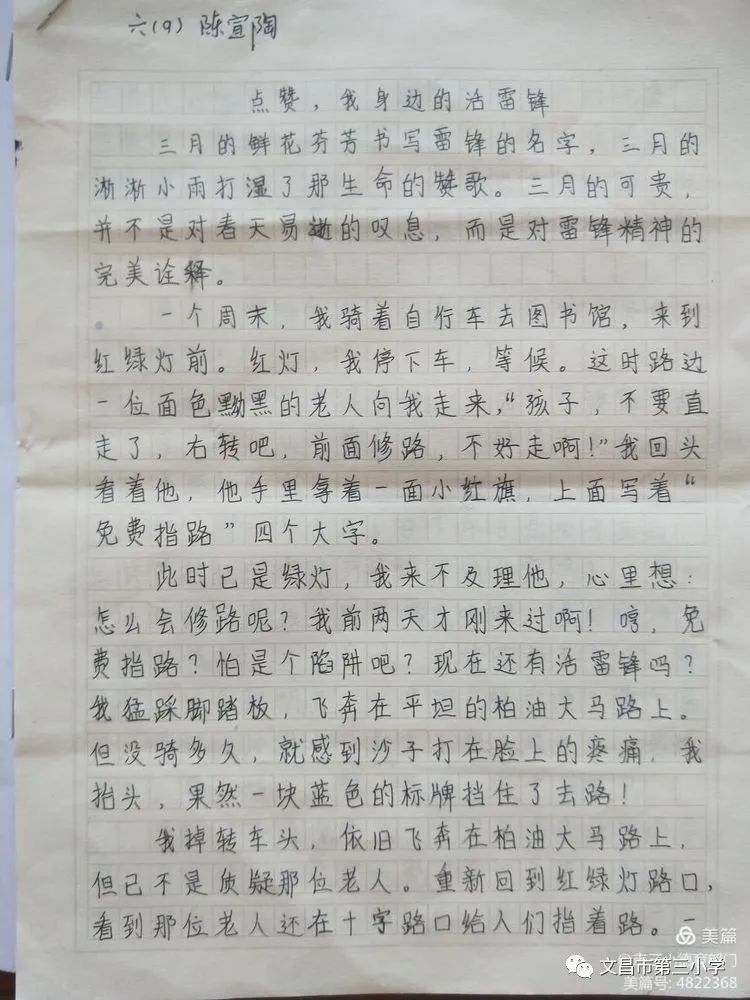 六(9) 陈宣陶
点赞，我身边的活雷锋
三月的鲜花芬芳书写雷锋的名字，三月的
淅淅小雨打湿了那生命的赞歌。三月的可贵，
并不是对春天易逝的叹息，而是对雷锋精神的
完美诠释。
一个周末，我骑着自行车去图书馆，来到
红绿灯前。红灯，我停下车，等候。这时路边
一位面色黝黑的老人向我走来，“孩子，不要直
走了，右转吧，前面修路，不好走啊！”我回头
看着他，他手里拿着一面小红旗，上面写着“
免费指路”四个大字。
此时已是绿灯，我来不及理他，心里想：
怎么会修路呢？我前两天才刚来过啊！哼，免
费指路？怕是个陷阱吧？现在还有活雷锋吗？
我猛踩脚踏板，飞奔在平坦的柏油大马路上。
但没骑多久，就感到沙子打在脸上的疼痛，我
抬头，果然一块蓝色的标牌挡住了去路！
我掉转车头，依旧飞奔在柏油大马路上，
但已不是质疑那位老人。重新回到红绿灯路口，
看到那位老人还在十字路口给人们指着路。一
美篇
文昌市第三小学
美篇号: 4822368